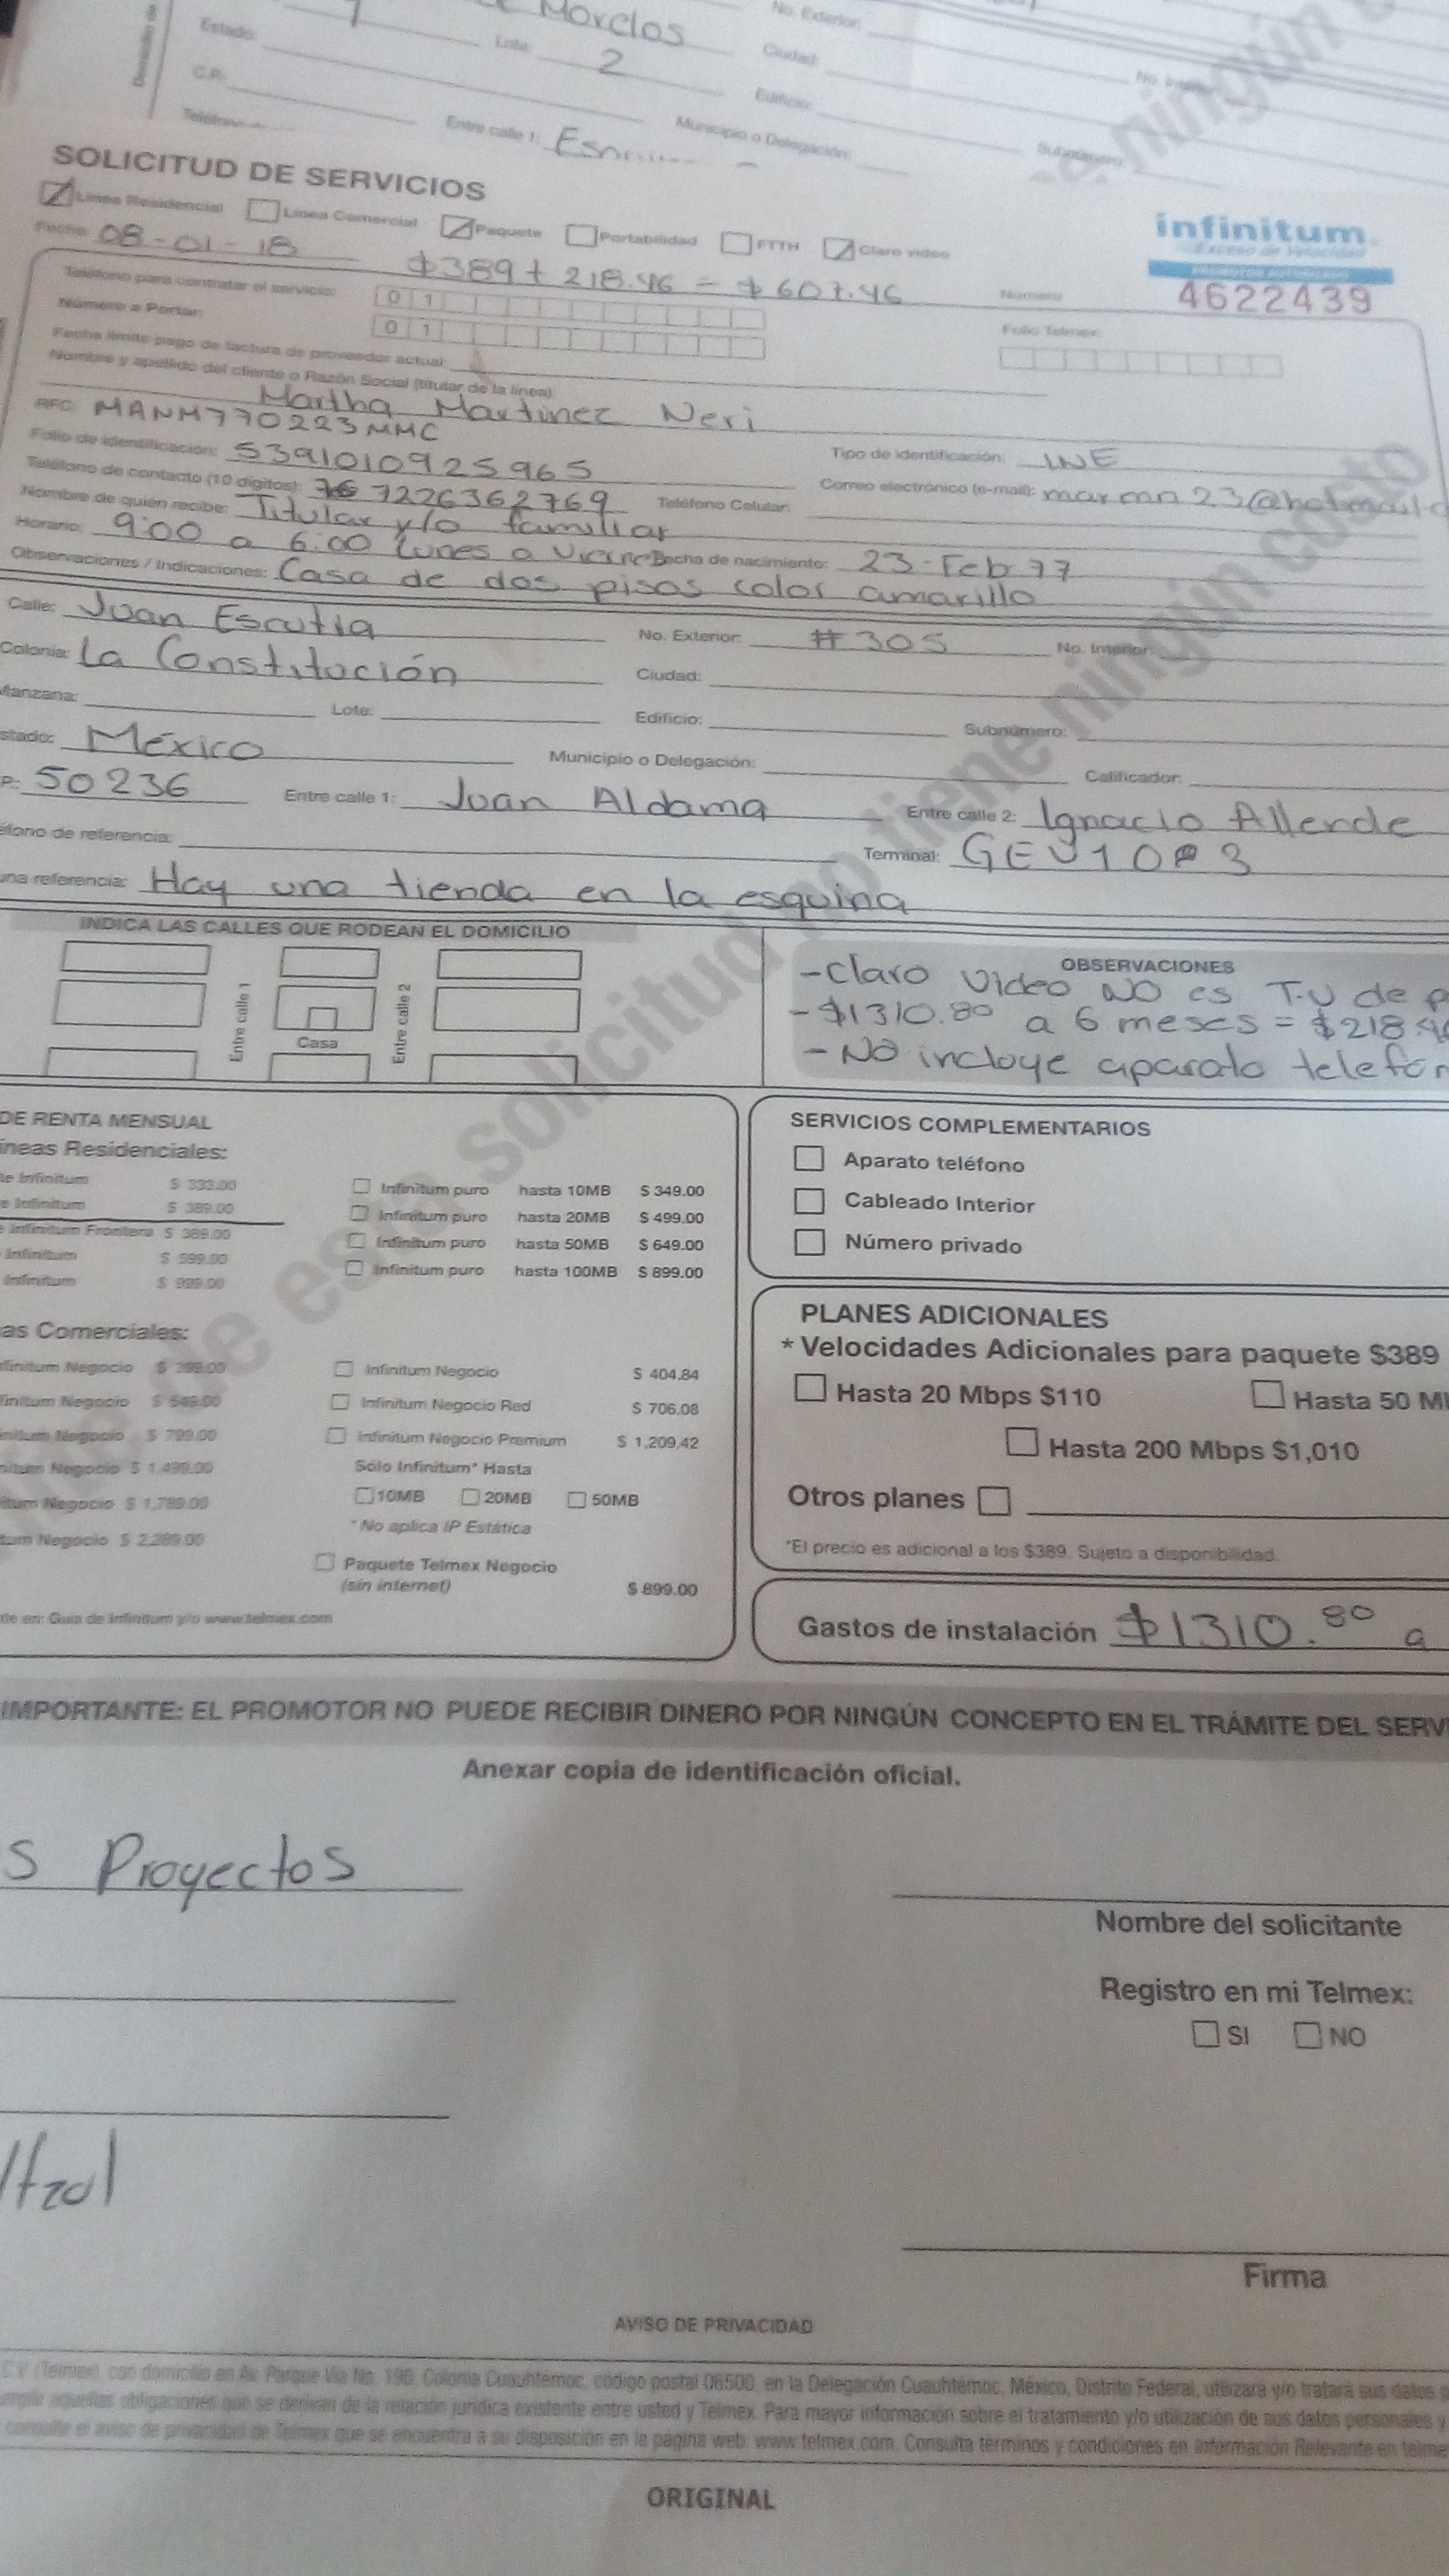 de Morelos
No. Exterior:
Estado: Lote: 2 Ciudad:
C.P. Edificio:
Entre calle 1: Municipio o Delegación: Subnúmero:
SOLICITUD DE SERVICIOS
Línea Residencial Línea Comercial Paquete Portabilidad FTTH Claro video
infinitum
Exceso de Velocidad
PROMOTOR AUTORIZADO
Fecha: 08-01-18
$389 + 218.46 = $607.46
Número 4622439
Teléfono para contratar el servicio: 0 1
Número a Portar: 0 1
Folio Telmex:
Fecha límite pago de factura de proveedor actual:
Nombre y apellido del cliente o Razón Social (titular de la línea):
Martha Martinez Neri
RFC: MANM770223MMC
Folio de identificación: 5391010925965 Tipo de identificación: INE
Teléfono de contacto (10 dígitos): 7226362769 Teléfono Celular: Correo electrónico (e-mail): marmn23@hotmail.c
Nombre de quién recibe: Titular y/o familiar
Horario: 9:00 a 6:00 Lunes a Viernes Fecha de nacimiento: 23-Feb 77
Observaciones / Indicaciones: Casa de dos pisos color amarillo
Calle: Juan Escutia No. Exterior: #305 No. Interior:
Colonia: La Constitución Ciudad:
Manzana: Lote: Edificio: Subnúmero:
stado: México Municipio o Delegación: Calificador:
P.: 50236 Entre calle 1: Juan Aldama Entre calle 2: Ignacio Allende
éfono de referencia: Terminal:
una referencia: Hay una tienda en la esquina
INDICA LAS CALLES QUE RODEAN EL DOMICILIO
Entre calle 1
Casa
Entre calle 2
OBSERVACIONES
- Claro Video NO es T.V de p
- $1310.80 a 6 meses = $218.46
- No incluye aparato telefon
DE RENTA MENSUAL
íneas Residenciales:
te Infinitum $ 333.00
e Infinitum $ 389.00
e Infinitum Frontera $ 389.00
Infinitum $ 599.00
Infinitum $ 999.00
Infinitum puro hasta 10MB $ 349.00
Infinitum puro hasta 20MB $ 499.00
Infinitum puro hasta 50MB $ 649.00
Infinitum puro hasta 100MB $ 899.00
as Comerciales:
finitum Negocio $ 399.00
finitum Negocio $ 549.00
initum Negocio $ 799.00
nitum Negocio $ 1,499.00
itum Negocio $ 1,789.00
tum Negocio $ 2,289.00
Infinitum Negocio $ 404.84
Infinitum Negocio Red $ 706.08
Infinitum Negocio Premium $ 1,209.42
Sólo Infinitum* Hasta
10MB 20MB 50MB
* No aplica IP Estática
Paquete Telmex Negocio
(sin internet) $ 899.00
te en: Guía de Infinitum y/o www.telmex.com
SERVICIOS COMPLEMENTARIOS
Aparato teléfono
Cableado Interior
Número privado
PLANES ADICIONALES
* Velocidades Adicionales para paquete $389
Hasta 20 Mbps $110 Hasta 50 M
Hasta 200 Mbps $1,010
Otros planes
*El precio es adicional a los $389. Sujeto a disponibilidad.
Gastos de instalación $1310.80 a
IMPORTANTE: EL PROMOTOR NO PUEDE RECIBIR DINERO POR NINGÚN CONCEPTO EN EL TRÁMITE DEL SERV
Anexar copia de identificación oficial.
s Proyectos
Nombre del solicitante
Registro en mi Telmex:
SI NO
Firma
AVISO DE PRIVACIDAD
C.V. (Telmex), con domicilio en Av. Parque Vía No. 190, Colonia Cuauhtémoc, código postal 06500, en la Delegación Cuauhtémoc, México, Distrito Federal, utilizará y/o tratará sus datos
umplir aquellas obligaciones que se derivan de la relación jurídica existente entre usted y Telmex. Para mayor información sobre el tratamiento y/o utilización de sus datos personales y
consulte el aviso de privacidad de Telmex que se encuentra a su disposición en la página web: www.telmex.com. Consulta términos y condiciones en Información Relevante en telme
ORIGINAL
de esta solicitud no tiene ningún costo